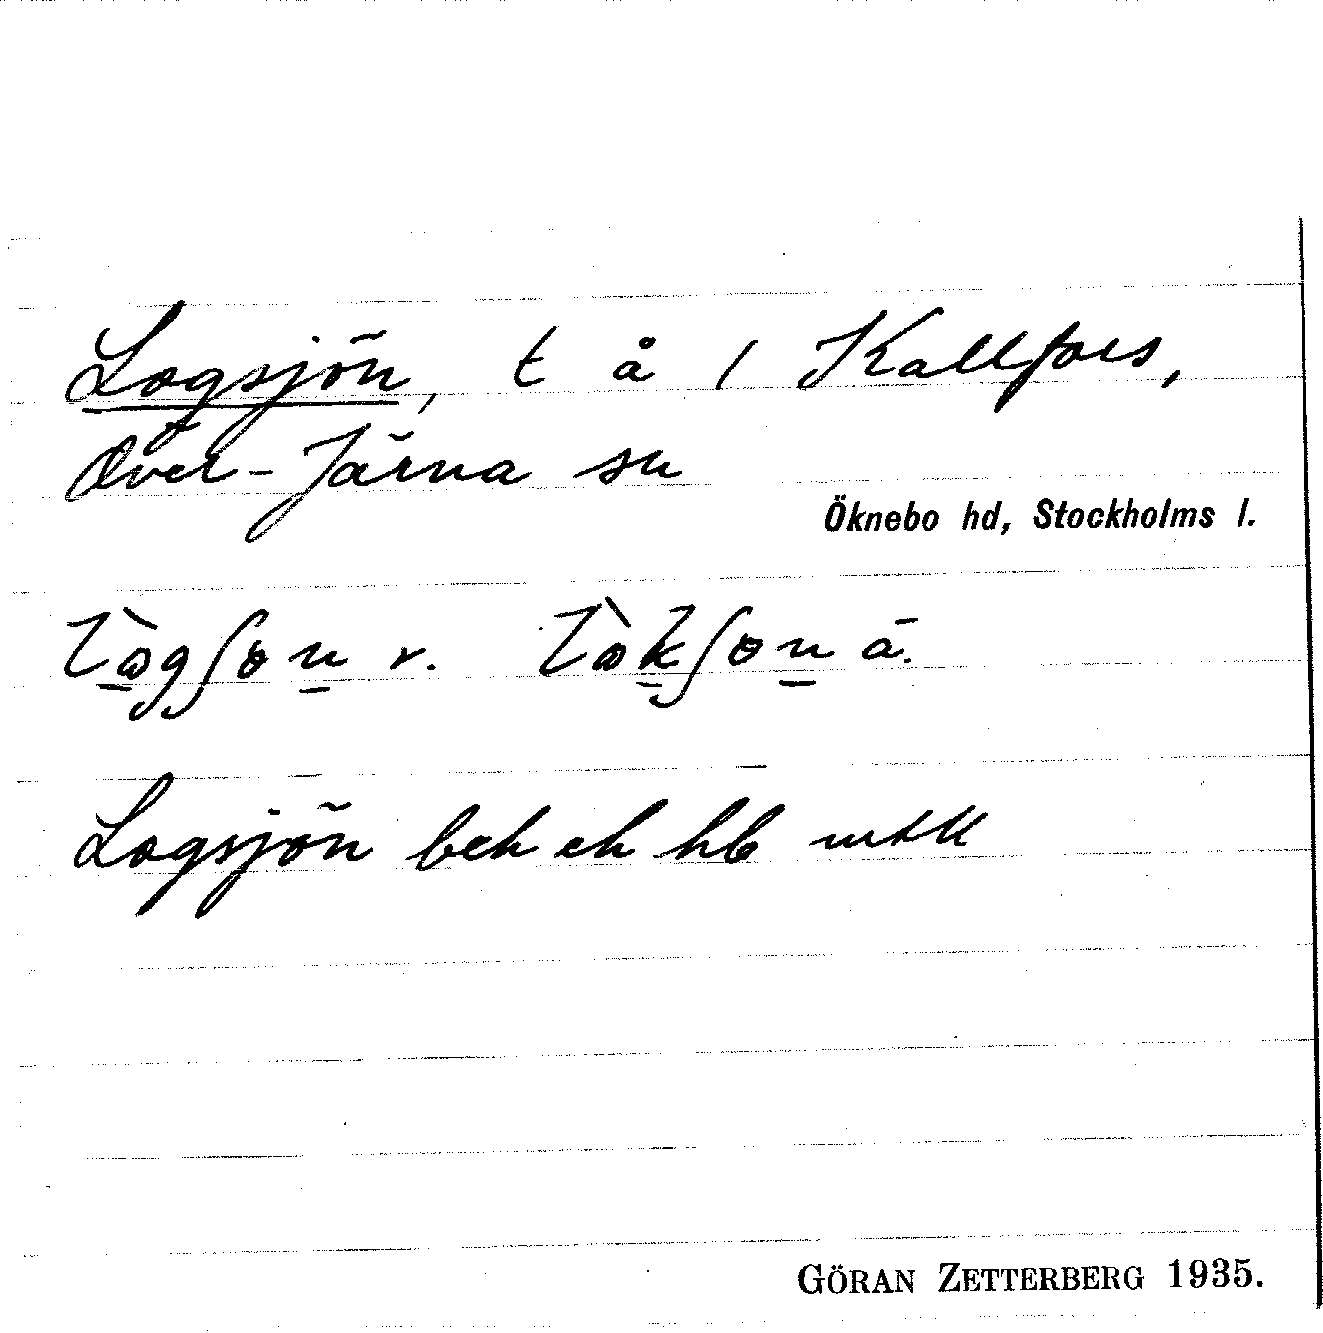 Logsjön, t å / Kallfors,
Över-Järna sn
Öknebo hd, Stockholms l.
r. ä.
Logsjön bek ek hb
GÖRAN ZETTERBERG 1935.